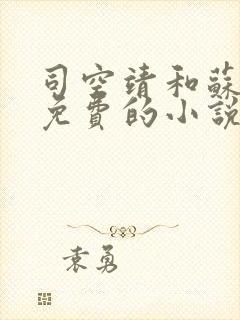 司空靖和蘇
免費的小說
袁勇